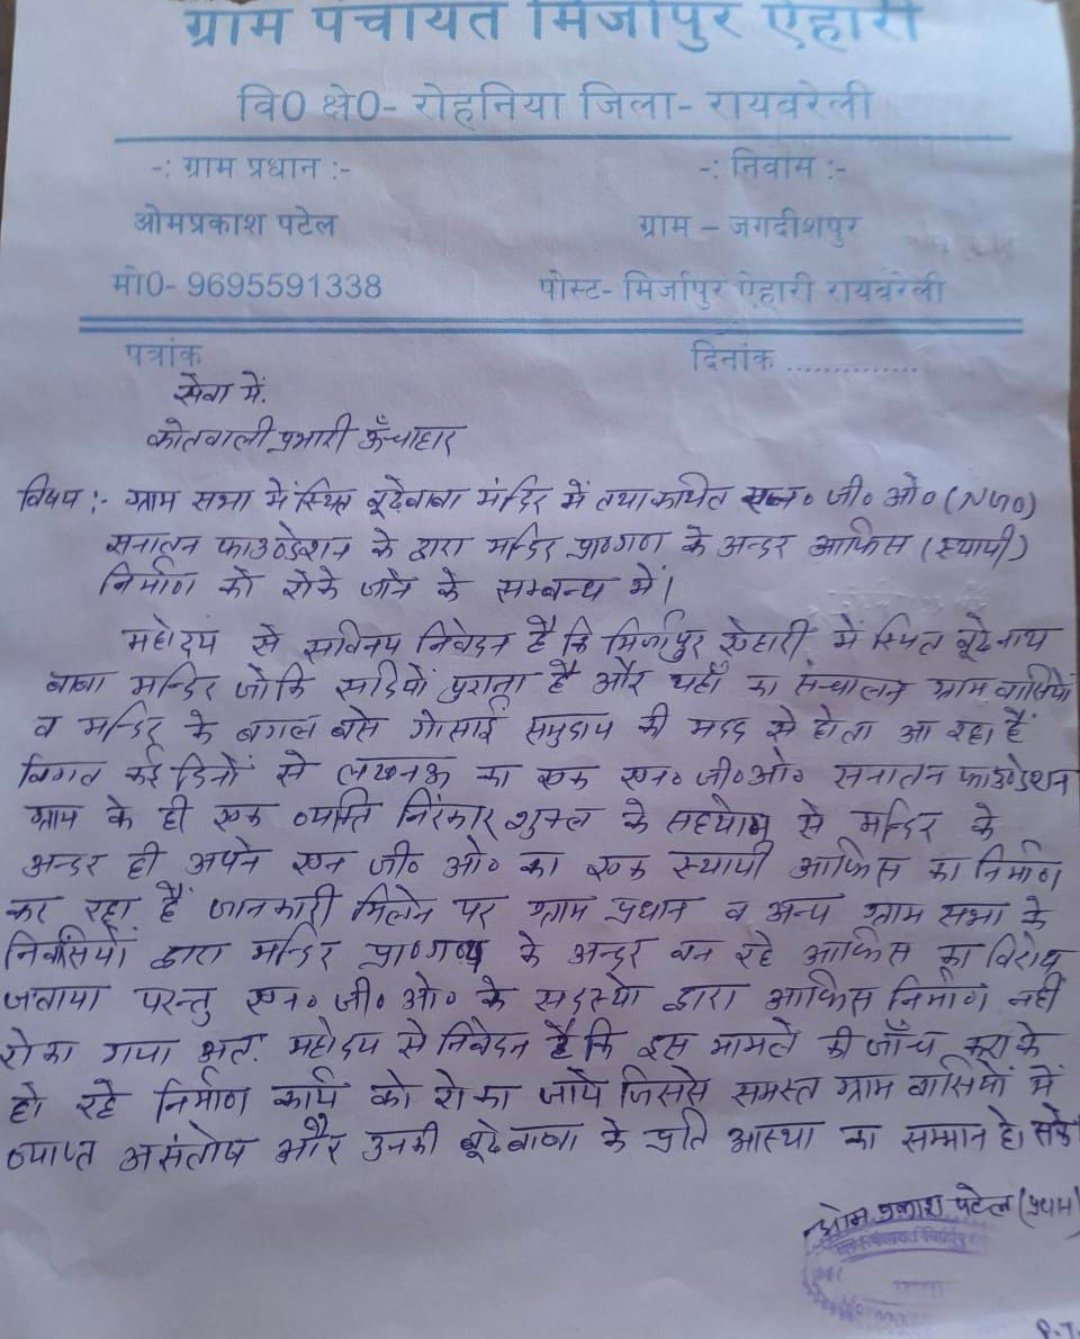 ग्राम पंचायत मिर्जापुर ऐहारी
वि0 क्षे0- रोहनिया जिला- रायबरेली
-: ग्राम प्रधान :-
-: निवास :-
ओमप्रकाश पटेल
ग्राम – जगदीशपुर
मो0- 9695591338
पोस्ट- मिर्जापुर ऐहारी रायबरेली
पत्रांक
दिनांक ..............
सेवा में.
कोतवाली प्रभारी ऊँचाहार
विषय :- ग्राम सभा में स्थित बूढ़ेबाबा मंदिर में तथाकथित एन० जी० ओ० (NGO)
सनातन फाउण्डेशन के द्वारा मन्दिर प्राण्गण के अन्दर आफिस (स्थायी)
निर्माण को रोके जाने के सम्बन्ध में।
महोदय से सविनय निवेदन है कि मिर्जापुर ऐहारी में स्थित बूढ़ेनाथ
बाबा मन्दिर जोकि सदियों पुराना है और यहाँ का संचालन ग्राम वासियों
व मन्दिर के बगल बसे गोसाई समुदाय की मदद से होता आ रहा हैं
विगत कई दिनों से लखनऊ का एक एन० जी०ओ० सनातन फाउण्डेशन
ग्राम के ही एक व्यक्ति निरंकार शुक्ल के सहयोग से मन्दिर के
अन्दर ही अपने एन जी० ओ० का एक स्थायी आफिस का निर्माण
कर रहा हैं जानकारी मिलने पर ग्राम प्रधान व अन्य ग्राम सभा के
निवासियों द्वारा मन्दिर प्राण्गण के अन्दर बन रहे आफिस का विरोध
जताया परन्तु एन० जी० ओ० के सदस्यो द्वारा आफिस निर्माण नहीं
रोका गया अतः महोदय से निवेदन है कि इस मामले की जाँच करा के
हो रहे निर्माण कार्य को रोका जाये जिससे समस्त ग्राम वासियों में
व्याप्त असंतोष और उनकी बूढ़ेबाबा के प्रति आस्था का सम्मान हो सके
ओम प्रकाश पटेल (प्रधान)